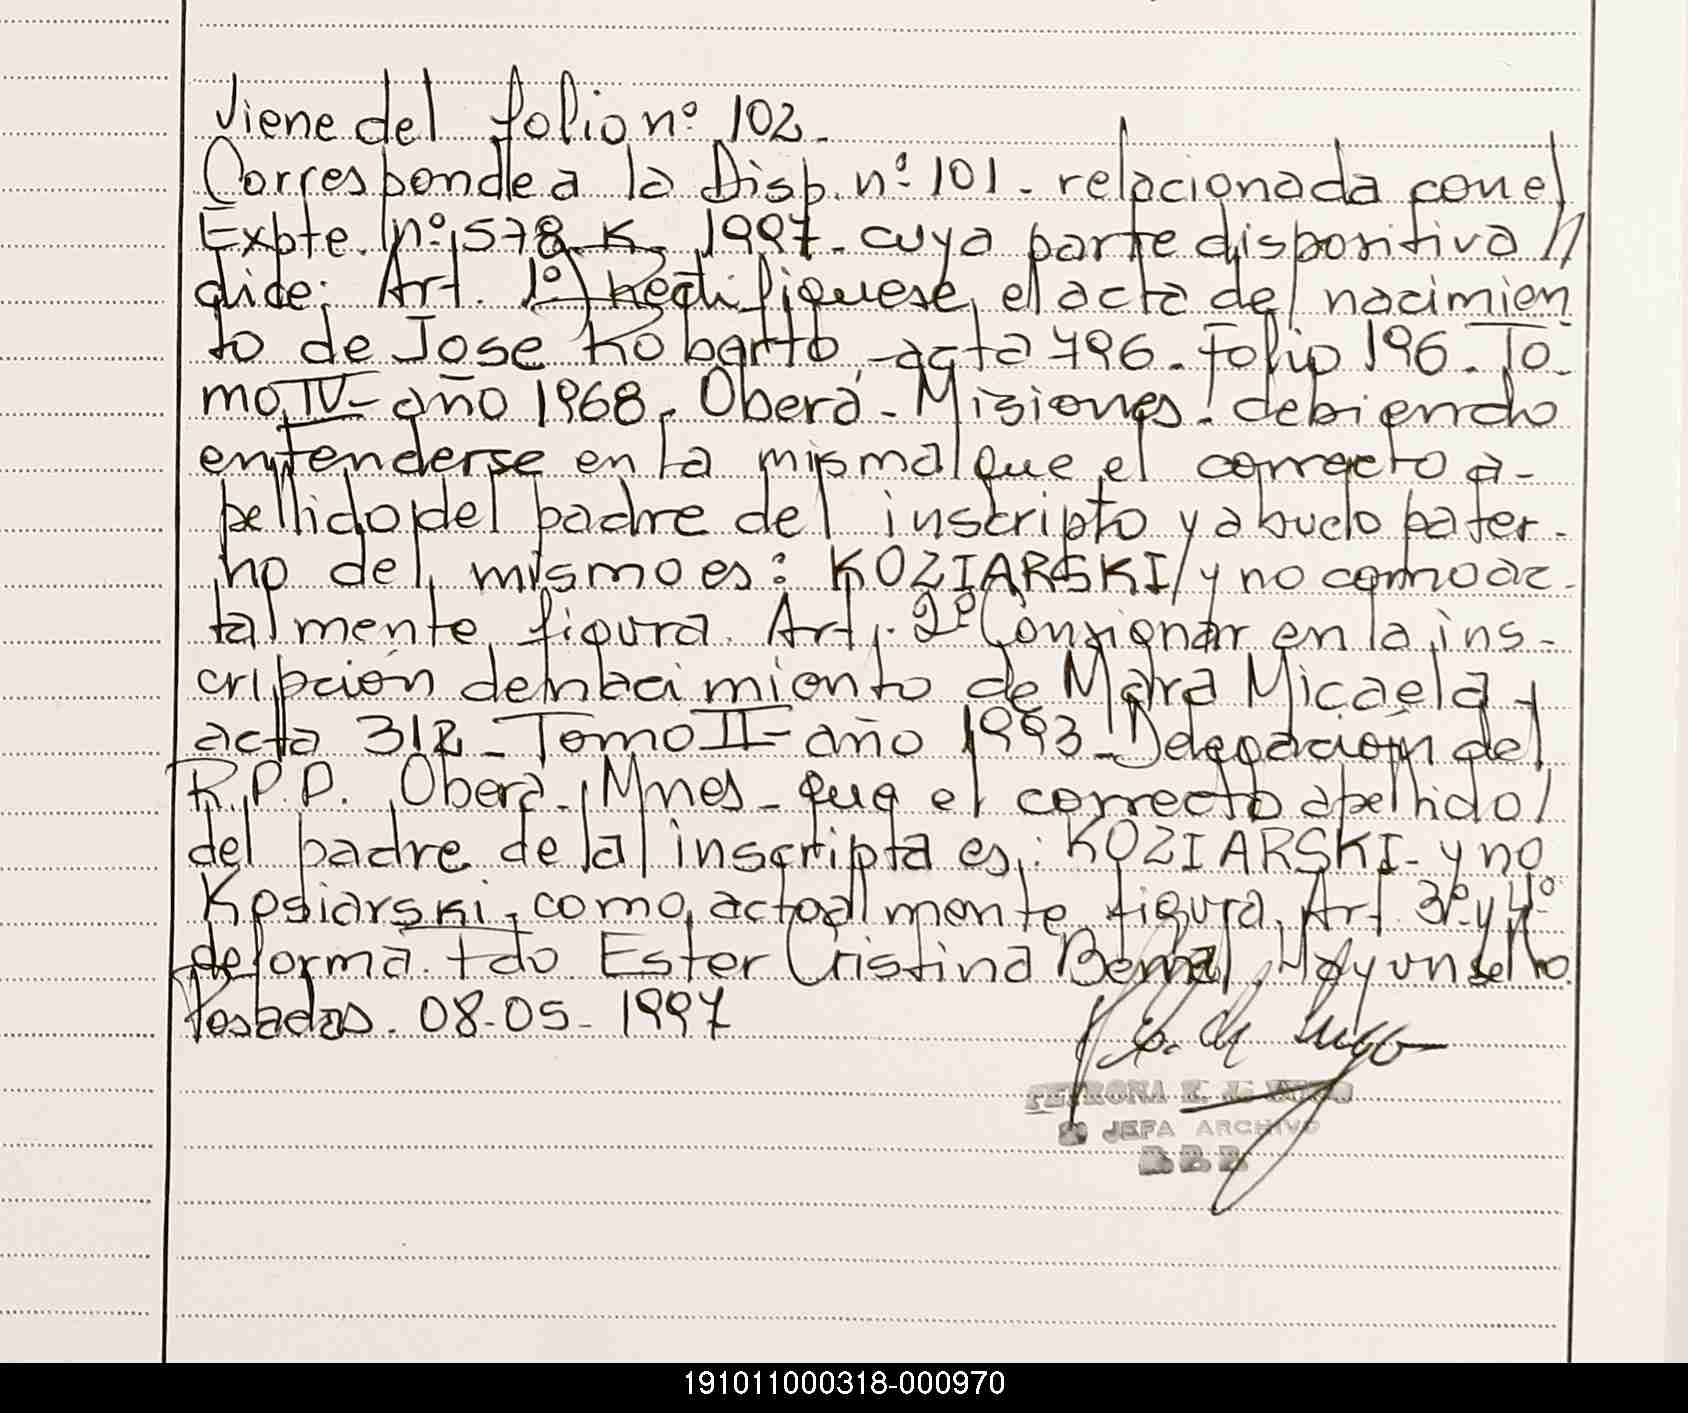 Viene del folio nº 102.
Corresponde a la Disp. nº 101. relacionada con el
Expte. nº 578. K. 1997. cuya parte dispositiva //
dice: Art. 1º) Rectifiquese, el acta de nacimien
to de Jose Robarto, acta 796. Folio 196. To-
mo IV- año 1968. Oberá- Misiones. debiendo
entenderse en la misma que el correcto a-
pellido del padre del inscripto y abuelo pater-
no del mismo es: KOZIARSKI/ y no como ac-
talmente figura. Art. 2º Consignar en la ins-
cripción de nacimiento de Mara Micaela-
acta 312- Tomo II- año 1993- Delegación del
R.P.P. Oberá. Mnes- que el correcto apellido/
del padre de la inscripta es: KOZIARSKI- y no
Kosiarski, como actoalmente figura. Art 3º y 4º
de forma. Fdo Ester Cristina Bernal. Hay un sello.
Posadas. 08-05-1997
PETRONA E.
JEFA ARCHIVO
191011000318-000970